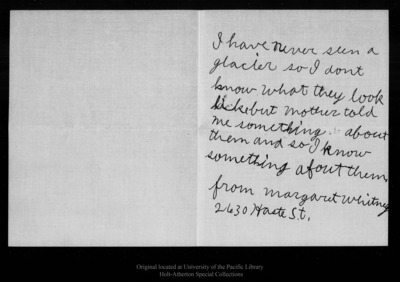 I have never seen a
glacier so I dont
know what they look
like but mother told
me something about
them and so I know
something about them,
from margaret whitney
2630 Haste St,
Original located at University of the Pacific Library
Holt-Atherton Special Collections